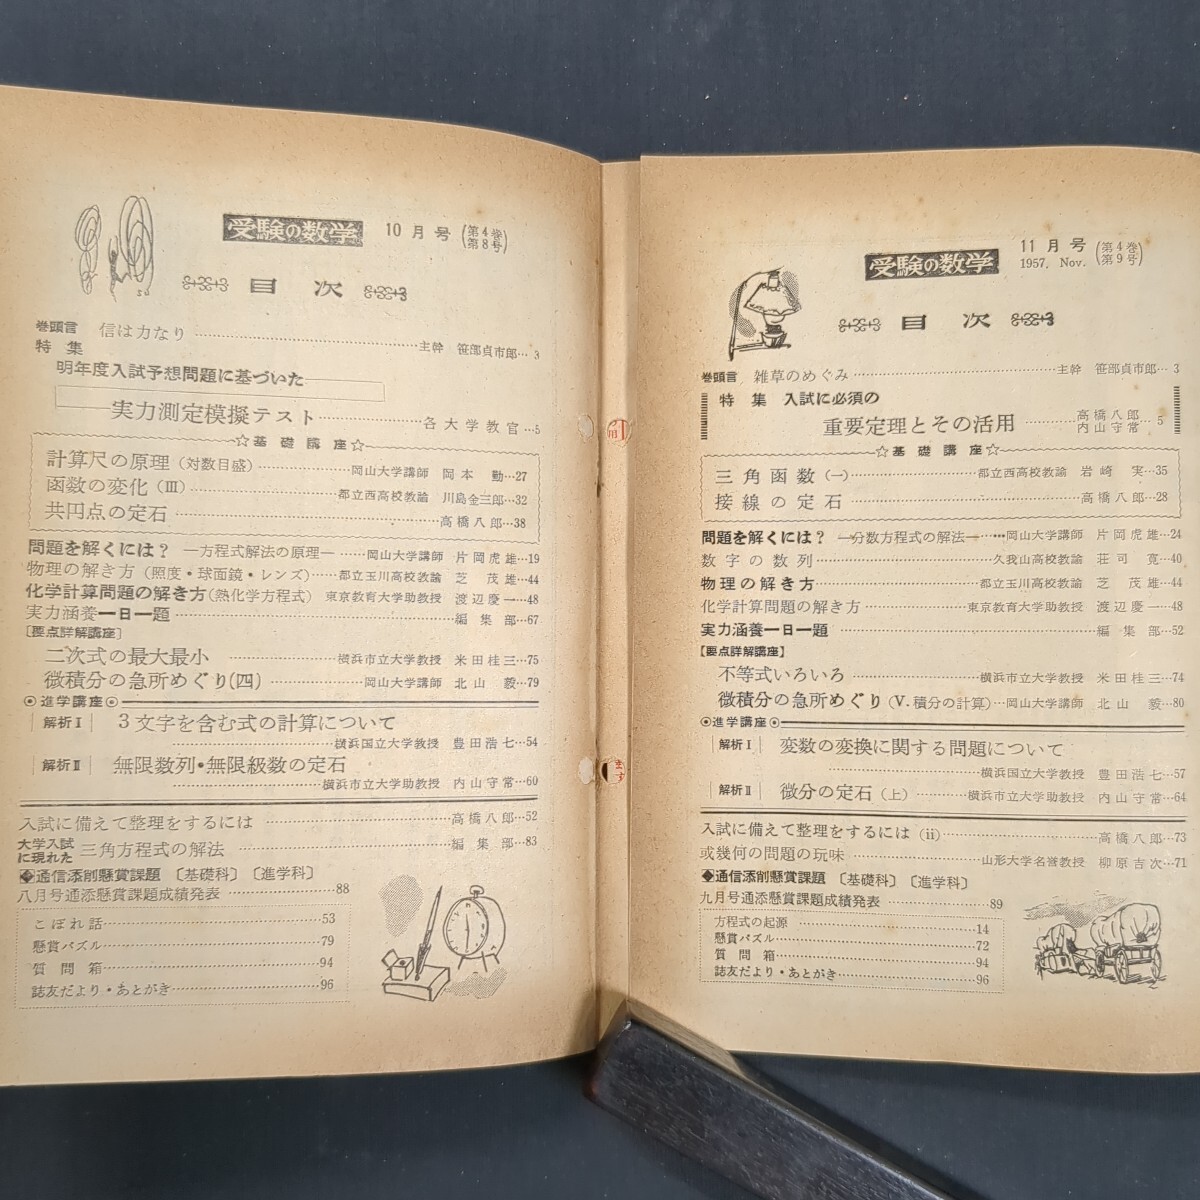 受験の数学 10月号 (第4巻 第8号)
目次
巻頭言 信は力なり……主幹 笹部貞市郎…3
特集
明年度入試予想問題に基づいた
――実力測定模擬テスト……各大学教官…5
☆基礎講座☆
計算尺の原理(対数目盛)……岡山大学講師 岡本 勤…27
函数の変化(Ⅲ)……都立西高校教諭 川島金三郎…32
共円点の定石……高橋八郎…38
問題を解くには? ―方程式解法の原理―……岡山大学講師 片岡虎雄…19
物理の解き方(照度・球面鏡・レンズ)……都立玉川高校教諭 芝 茂雄…44
化学計算問題の解き方(熱化学方程式) 東京教育大学助教授 渡辺慶一…48
実力涵養一日一題……編集部…67
〔要点詳解講座〕
二次式の最大最小……横浜市立大学教授 米田桂三…75
微積分の急所めぐり(四)……岡山大学講師 北山 毅…79
◎進学講座◎
解析Ⅰ 3文字を含む式の計算について
……横浜国立大学教授 豊田浩七…54
解析Ⅱ 無限数列・無限級数の定石
……横浜市立大学助教授 内山守常…60
入試に備えて整理をするには……高橋八郎…52
大学入試に現れた 三角方程式の解法……編集部…83
◆通信添削懸賞課題 〔基礎科〕〔進学科〕
八月号通添懸賞課題成績発表……88
こぼれ話……53
懸賞パズル……79
質問箱……94
誌友だより・あとがき……96
受験の数学 11月号 1957, Nov. (第4巻 第9号)
目次
巻頭言 雑草のめぐみ……主幹 笹部貞市郎…3
特集 入試に必須の
重要定理とその活用……高橋八郎 内山守常…5
☆基礎講座☆
三角函数(一)……都立西高校教諭 岩崎 実…35
接線の定石……高橋八郎…28
問題を解くには? ―分数方程式の解法―……岡山大学講師 片岡虎雄…24
数字の数列……久我山高校教諭 荘司 寛…40
物理の解き方……都立玉川高校教諭 芝 茂雄…44
化学計算問題の解き方……東京教育大学助教授 渡辺慶一…48
実力涵養一日一題……編集部…52
【要点詳解講座】
不等式いろいろ……横浜市立大学教授 米田桂三…74
微積分の急所めぐり(V.積分の計算)…岡山大学講師 北山 毅…80
◎進学講座◎
解析Ⅰ 変数の変換に関する問題について
……横浜国立大学教授 豊田浩七…57
解析Ⅱ 微分の定石(上)……横浜市立大学助教授 内山守常…64
入試に備えて整理をするには(ii)……高橋八郎…73
或幾何の問題の玩味……山形大学名誉教授 柳原吉次…71
◆通信添削懸賞課題 〔基礎科〕〔進学科〕
九月号通添懸賞課題成績発表……89
方程式の起源……14
懸賞パズル……72
質問箱……94
誌友だより・あとがき……96